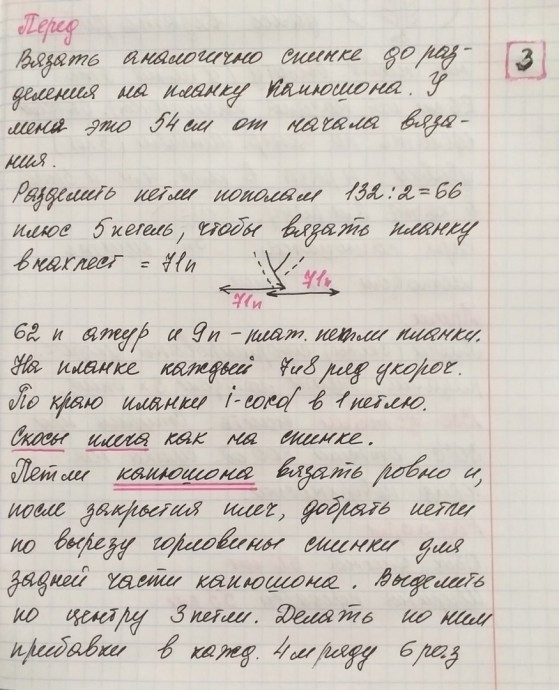 Перед
Вязать аналогично спинке до раз-
деления на планку капюшона. У
меня это 54 см от начала вяза-
ния.
3
Разделить петли пополам 132:2=66
плюс 5 петель, чтобы вязать планку
внахлест = 71п
71п
71п
62 п ажур и 9п - плат. петли планки.
На планке каждый 7и8 ряд укороч.
По краю планки i-cord в 1 петлю.
Скосы плеча как на спинке.
Петли капюшона вязать ровно и,
после закрытия плеч, добрать петли
по вырезу горловины спинки для
задней части капюшона. Выделить
по центру 3 петли. Делать по ним
прибавки в кажд. 4м ряду 6 раз